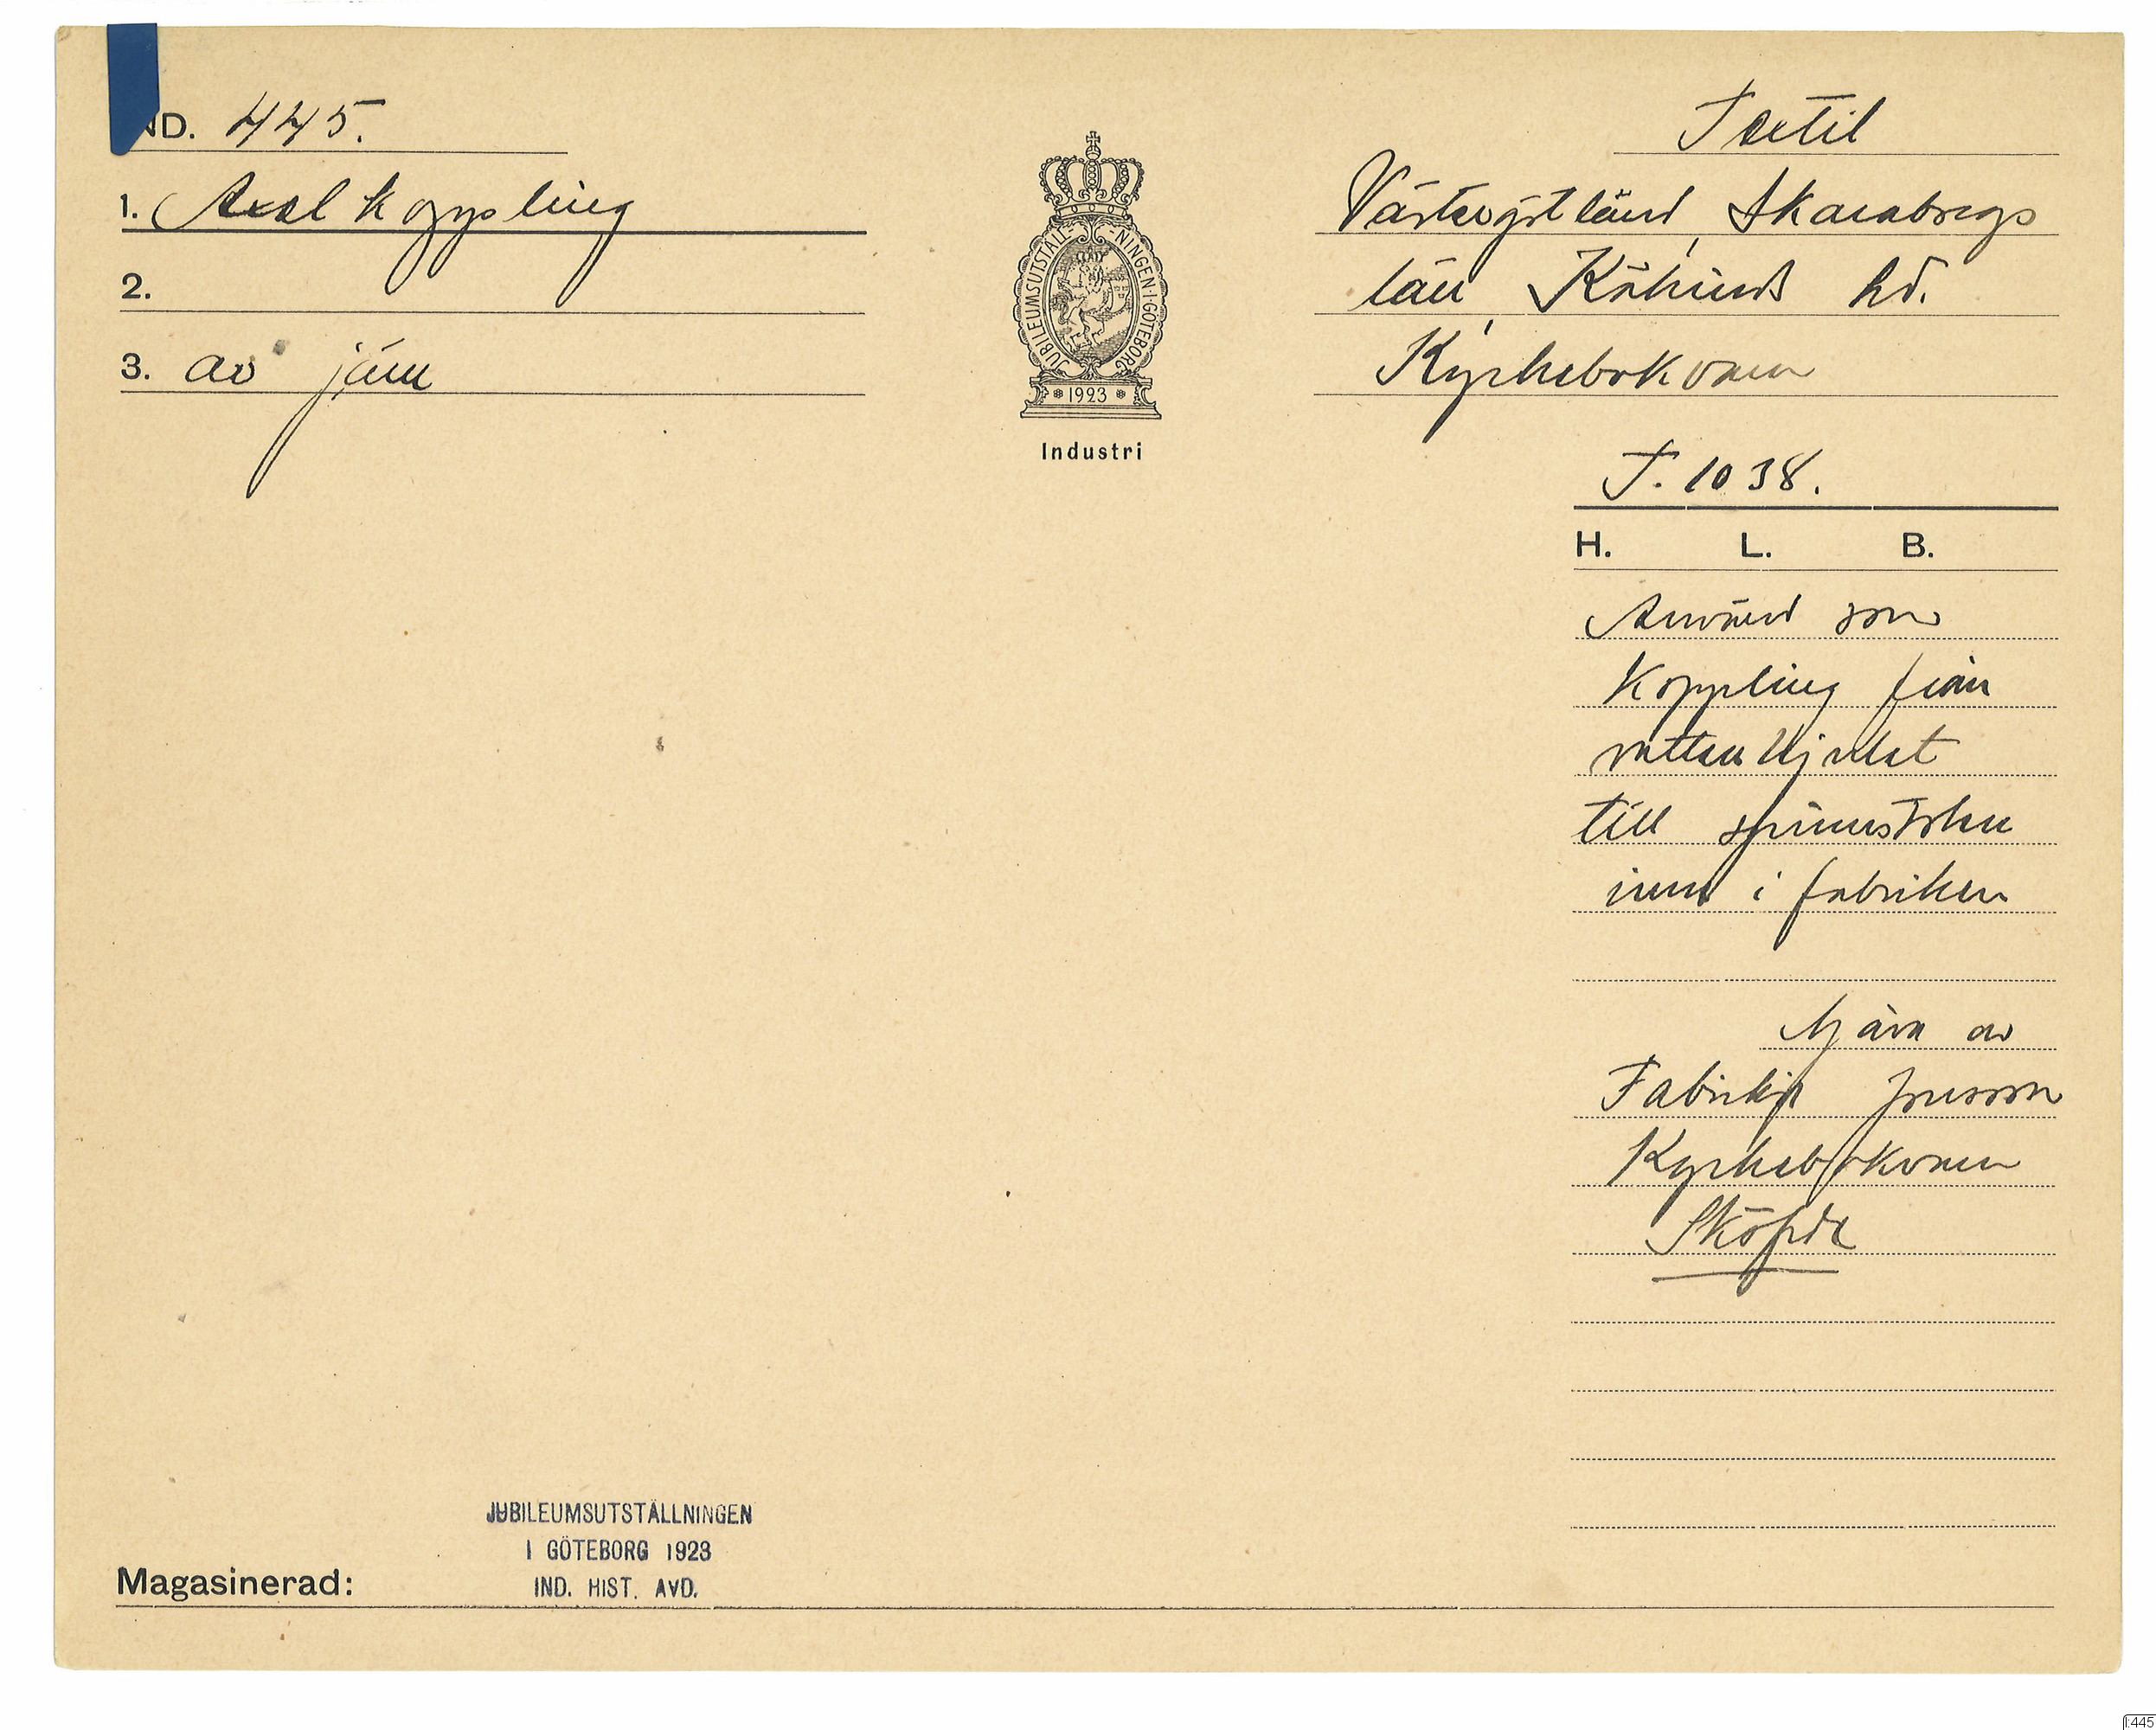 ND. 445.
1. Axelkoppling
2.
3. av järn
JUBILEUMSUTSTÄLL-NINGEN·I·GÖTEBORG
* 1923 *
Industri
Textil
Västergötland, Skaraborgs
län, Kåkinds hd.
Kyrkebokvarn
T. 1038.
H. L. B.
Använd som
koppling från
vattenhjulet
till spinnstolen
inne i fabriken
Gåva av
Fabrikör Jonsson
Kyrkebokvarn
Sköfde
JUBILEUMSUTSTÄLLNINGEN
I GÖTEBORG 1923
IND. HIST. AVD.
Magasinerad:
I:445